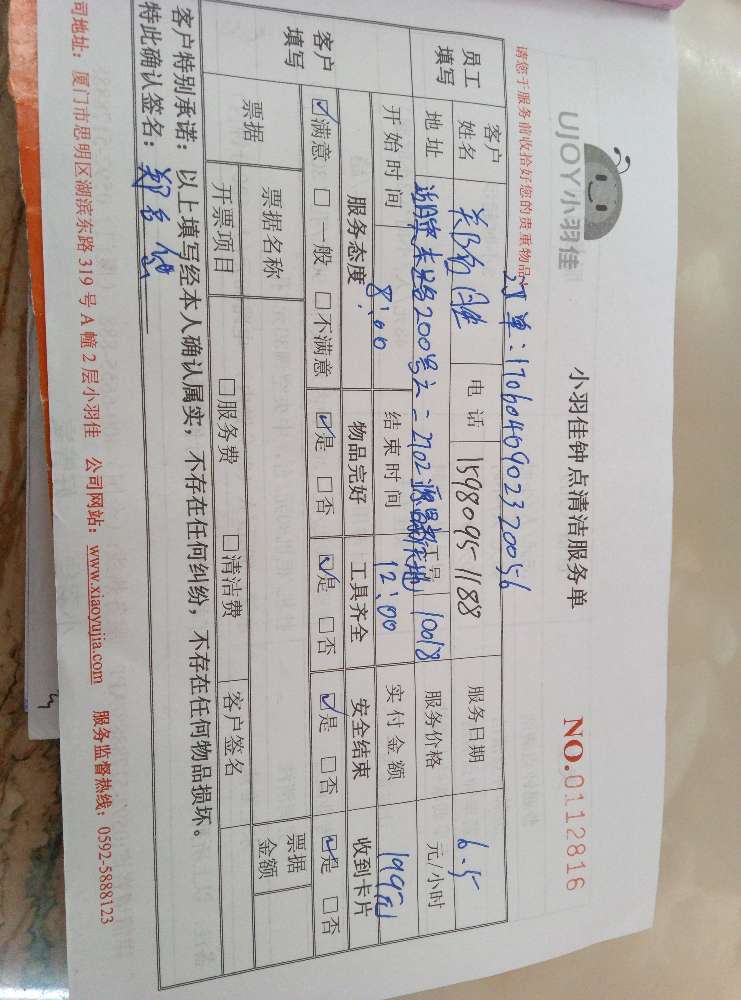 UJOY小羽佳
小羽佳钟点清洁服务单
NO.0112816
请您于服务前收拾好您的贵重物品
订单:17060409023 20056
员工填写
客户姓名 电话 15980951188 服务日期 6.5
地址 湖滨东路200号之一2702 工号 10018 服务价格 元/小时
开始时间 8:00 结束时间 12:00 实付金额
客户填写
服务态度 物品完好 工具齐全 安全结束 收到卡片
☑满意 □一般 □不满意 ☑是 □否 ☑是 □否 ☑是 □否 ☑是 □否
票据 票据名称 票据金额
开票项目 □服务费 □清洁费 客户签名
客户特别承诺：以上填写经本人确认属实，不存在任何纠纷，不存在任何物品损坏。
特此确认签名：
司地址：厦门市思明区湖滨东路 319 号 A 幢 2 层小羽佳 公司网站：www.xiaoyujia.com 服务监督热线：0592-5888123